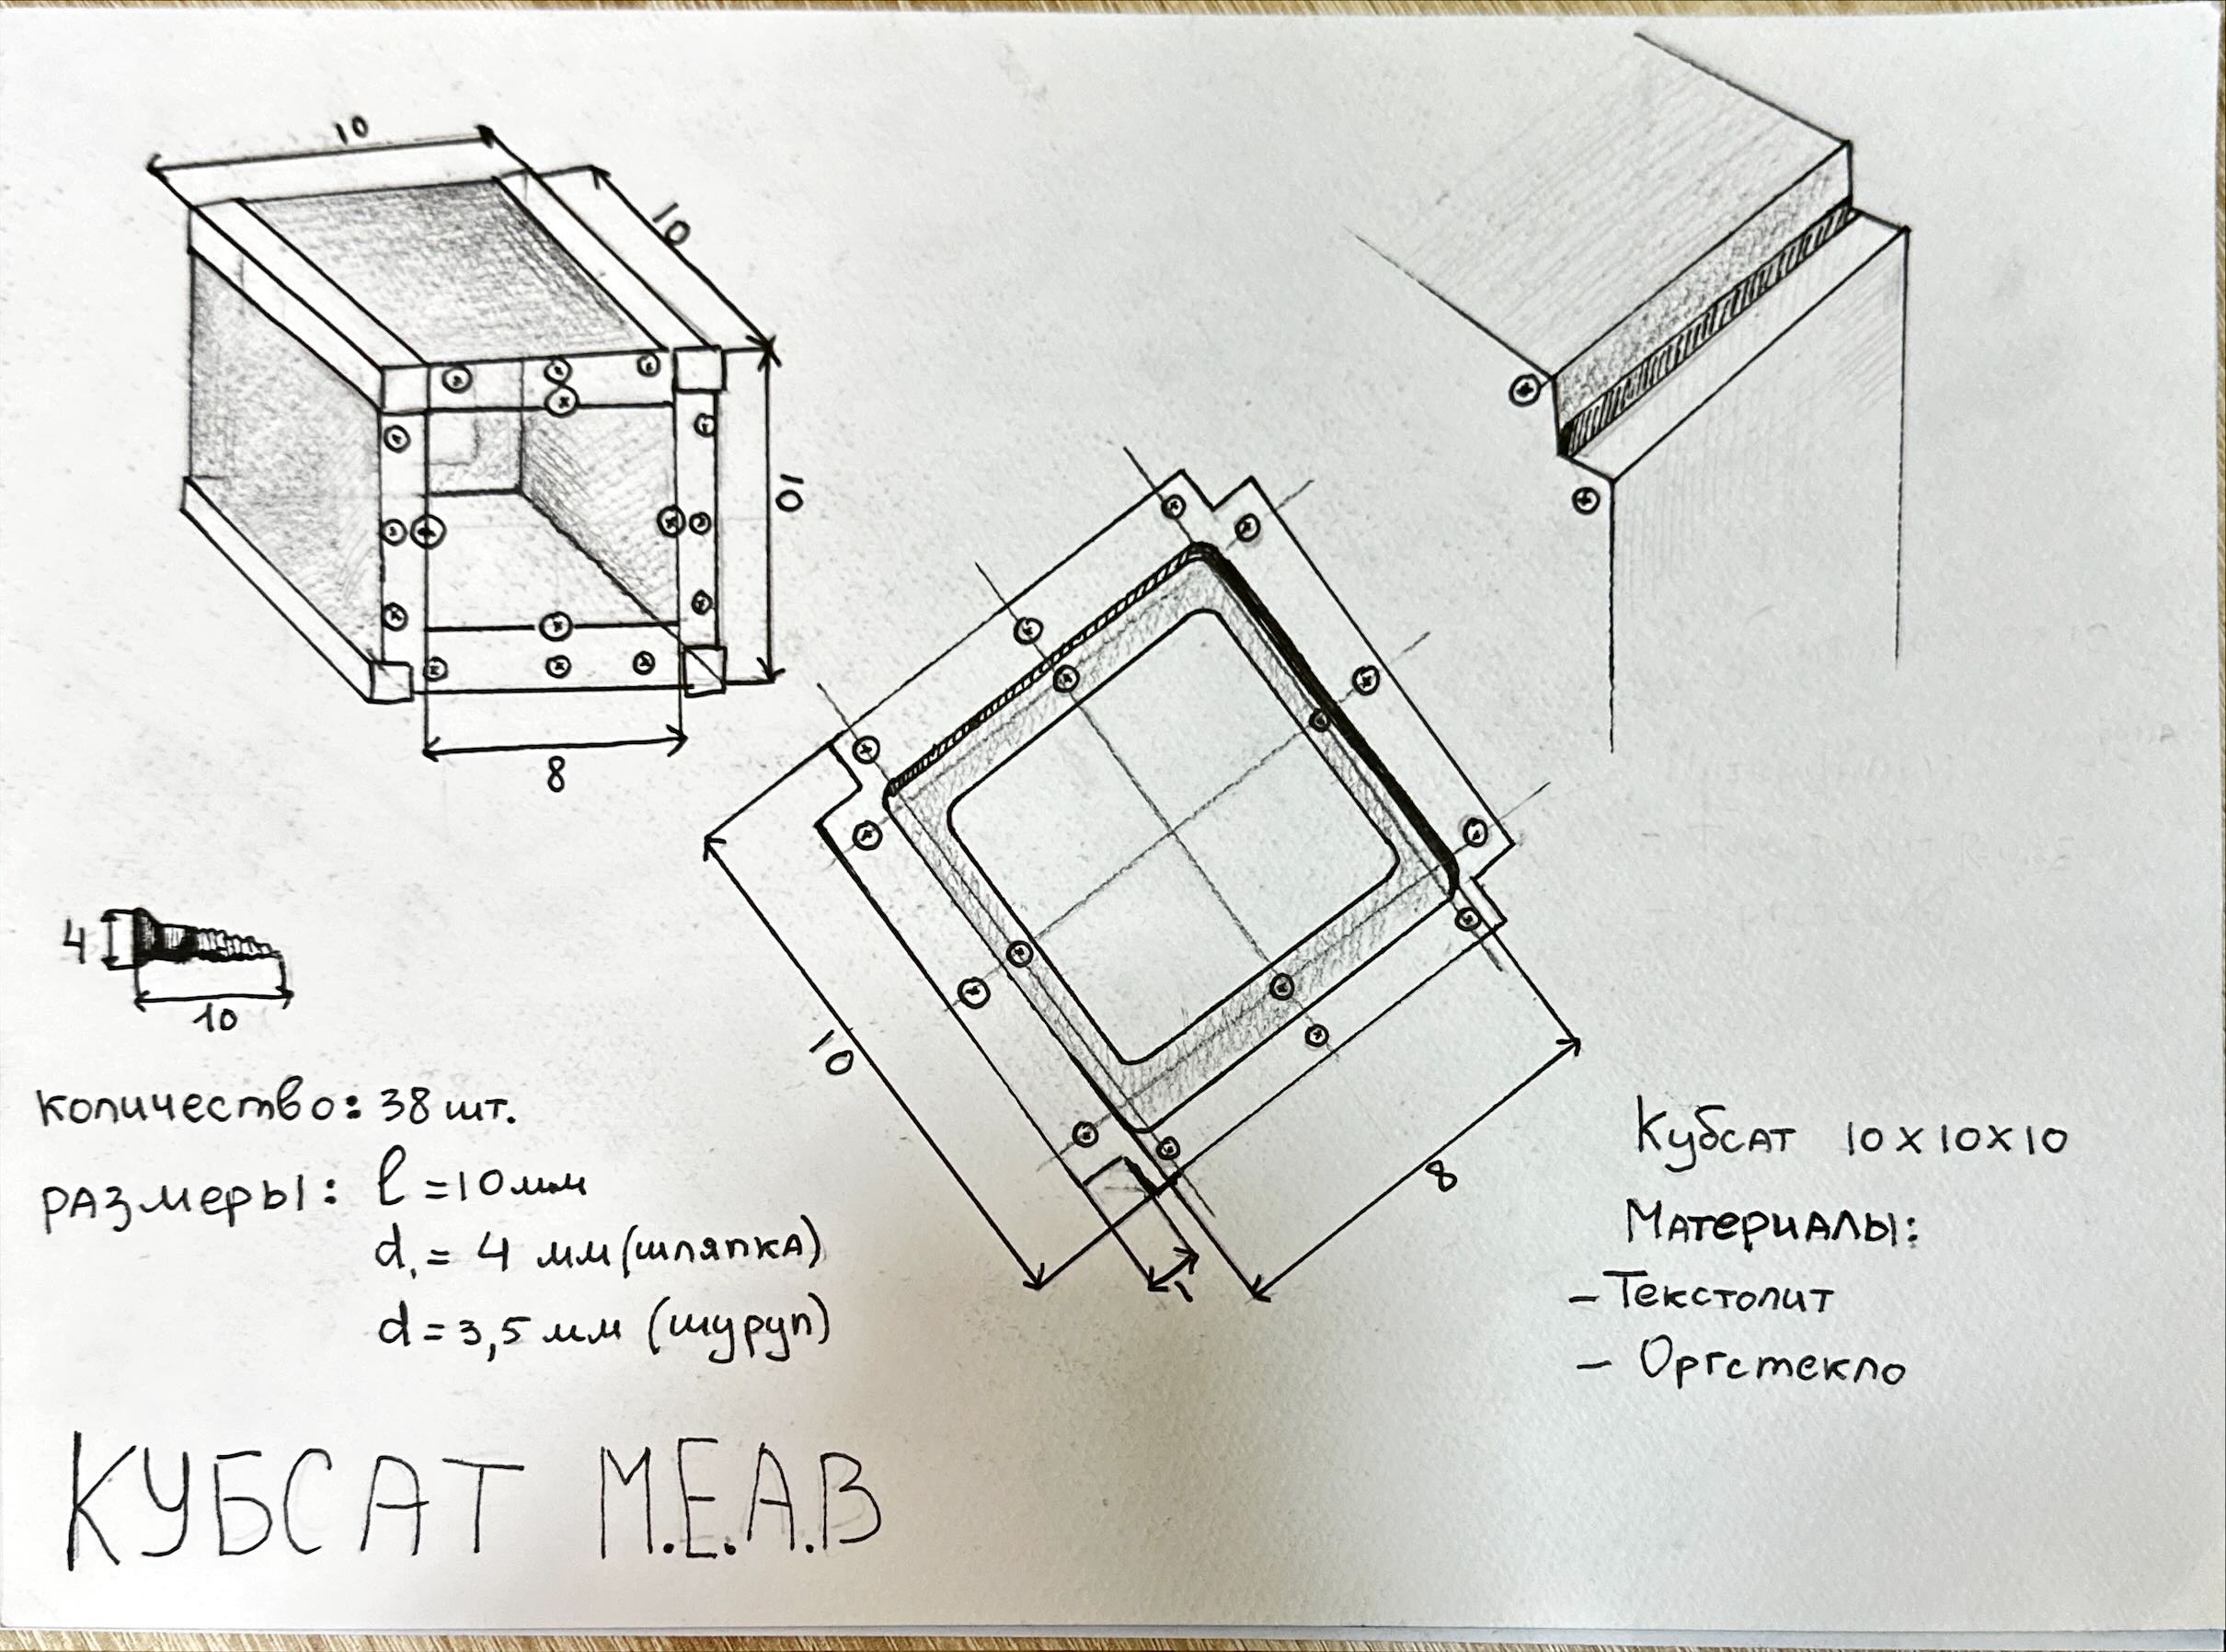 10
10
10
8
4
10
количество: 38 шт.
размеры: l = 10 мм
d₁ = 4 мм (шляпка)
d = 3,5 мм (шуруп)
10
1
8
Кубсат 10 х 10 х 10
Материалы:
- Текстолит
- Оргстекло
КУБСАТ М.Е.А.В